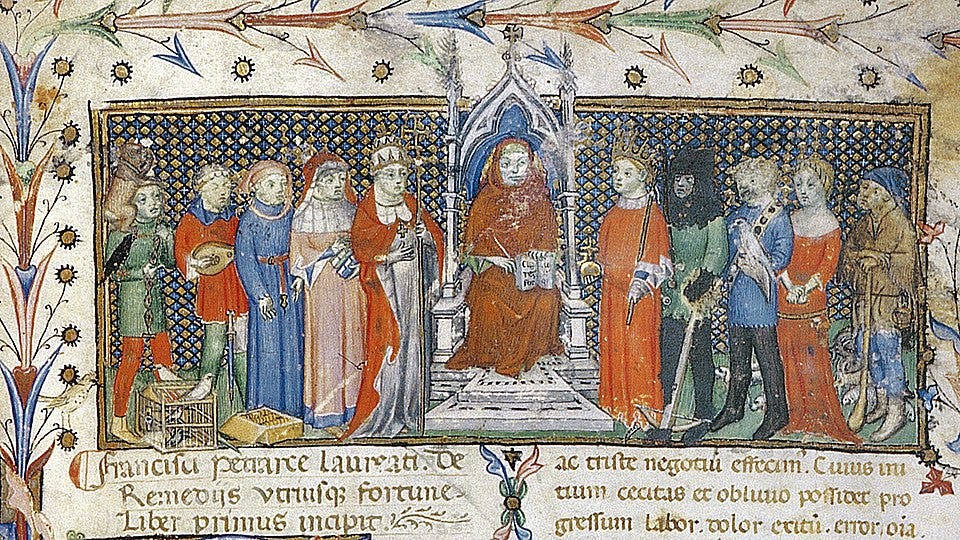 Francisci petrarce laureati. De
Remedijs vtriusq; fortune.
Liber primus incipit
ac triste negotiū effecim. Cuius ini
tium cecitas et obliuio possidet pro
gressum labor. dolor exitū. error. oīa.